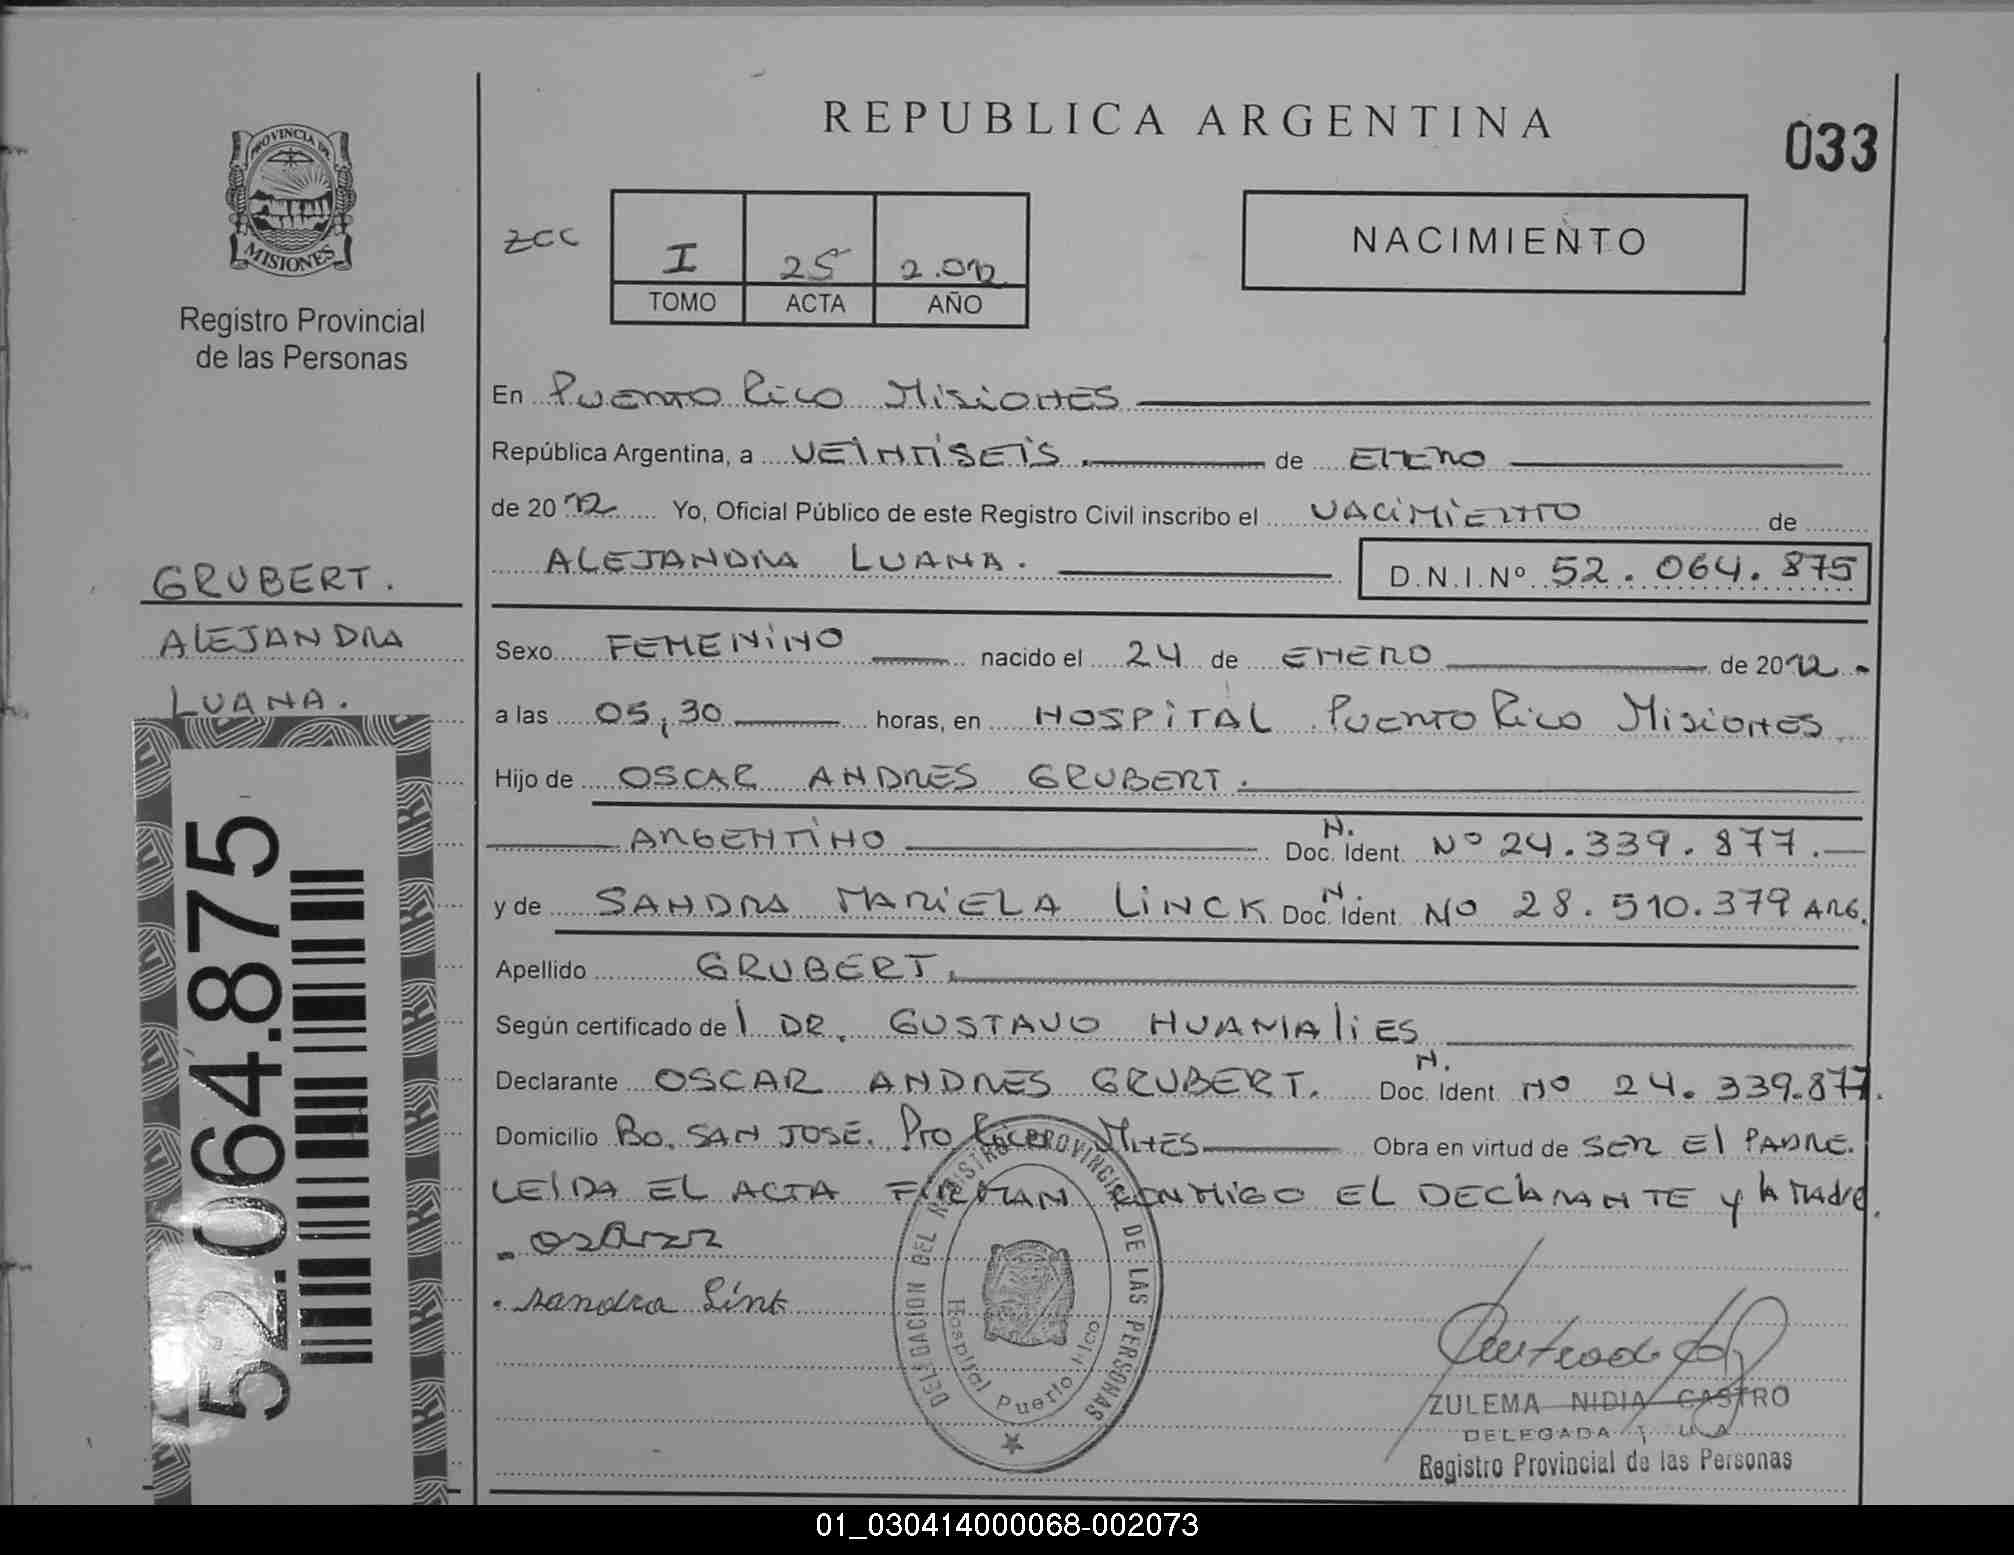 REPUBLICA ARGENTINA
033
PROVINCIA DE
MISIONES
Registro Provincial
de las Personas
ZCC
I 25 2.012
TOMO ACTA AÑO
NACIMIENTO
En Puerto Rico Misiones
República Argentina, a VEINTISEIS de ENERO
de 2012 Yo, Oficial Público de este Registro Civil inscribo el NACIMIENTO de
ALEJANDRA LUANA. D.N.I.Nº 52.064.875
GRUBERT.
ALEJANDRA
LUANA.
Sexo FEMENINO nacido el 24 de ENERO de 2012.
a las 05,30 horas, en HOSPITAL Puerto Rico Misiones
Hijo de OSCAR ANDRES GRUBERT.
ARGENTINO N. Doc. Ident. Nº 24.339.877.
y de SANDRA MARIELA LINCK N. Doc. Ident. Nº 28.510.379 ARG.
Apellido GRUBERT.
Según certificado de l DR. GUSTAVO HUAMALIES
Declarante OSCAR ANDRES GRUBERT. N. Doc. Ident. Nº 24.339.877.
Domicilio Bo. SAN JOSE. Pto Rico Mnes Obra en virtud de SER El PADRE.
LEIDA EL ACTA FIRMAN CONMIGO EL DECLARANTE y la Madre.
sandra Link
52.064.875
DELEGACION DEL REGISTRO PROVINCIAL DE LAS PERSONAS
Hospital Puerto Rico
ZULEMA NIDIA CASTRO
DELEGADA
Registro Provincial de las Personas
01_030414000068-002073